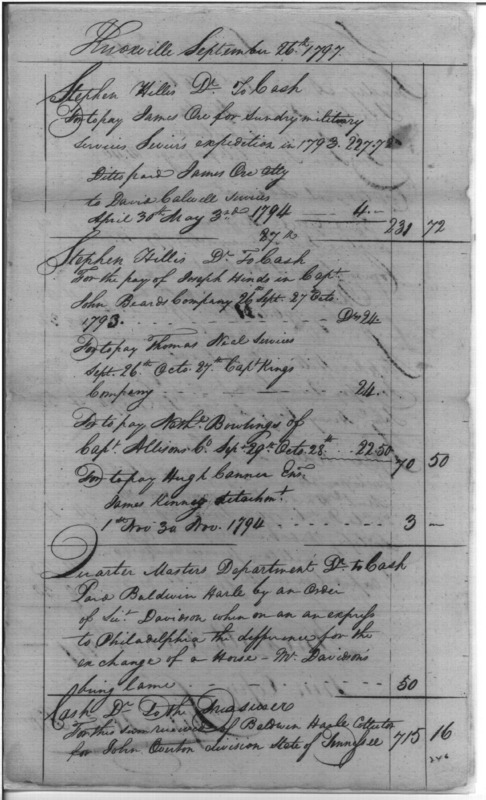 Knoxville September 26th 1797.
Stephen Hillis Dr. To Cash
For to pay James Ore for Sundry military
Services Seviers expedition in 1793. 227.72
Ditto paid James Ore
to David Calwell Services
April 30th May 3rd 1794 4.— 231 72
27th
Stephen Hillis Dr. To Cash
For the pay of Joseph Hinds in Capt.
John Beards Company 26th Sept. 27 Octo.
1793. Drs 24.
For to pay Thomas Neel Services
Sept. 26th Octo. 27th Capt. Kings
Company 24.
For to pay Nathl. Bowlings of
Capt. Allisons Co. Sep. 29th Octo. 28th 22.50 70 50
For to pay Hugh Canner Ens.
James Kinney detachmt.
1st Nov 30 Nov. 1794 3 —
Quarter Masters Department Dr. to Cash
Paid Baldwin Harle by an Order
of Davidson when on an an express
to Philadelphia the difference for the
exchange of a Horse – Mr. Davidson's
being lame 50
Cash Dr. To the Treasurer
For this sum received of Baldwin Harle Collector
for John Overton division State of Tennessee 715 16